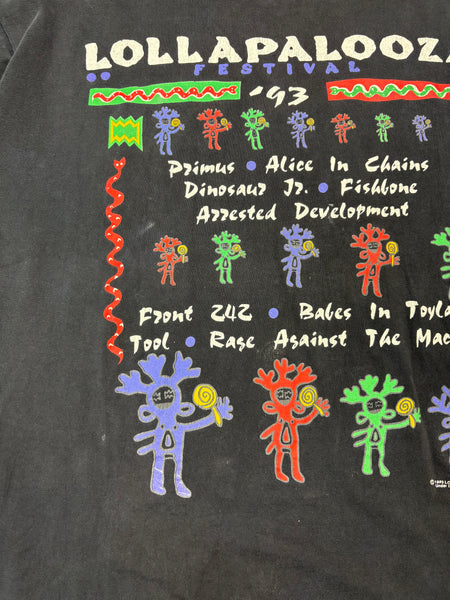 LOLLAPALOOZA
FESTIVAL
'93
Primus • Alice In Chains
Dinosaur Jr. • Fishbone
Arrested Development
Front 242 • Babes In Toyla
Tool • Rage Against The Mac
©1993 LO
Under